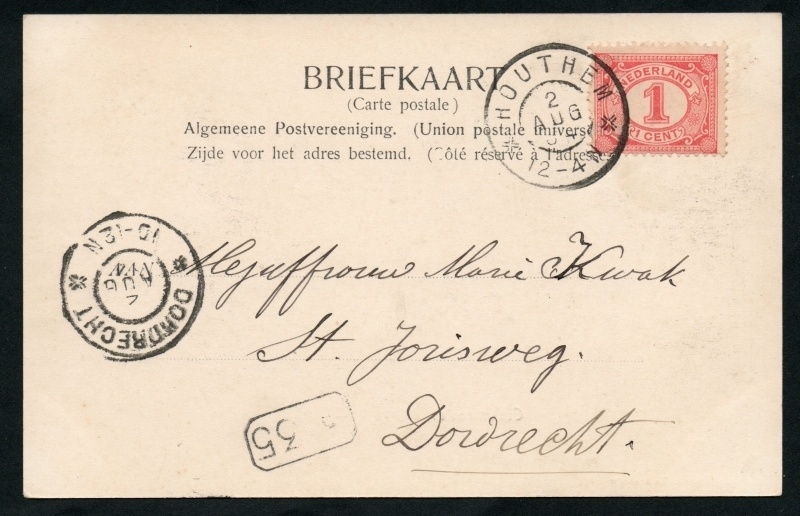 BRIEFKAART
(Carte postale)
Algemeene Postvereeniging. (Union postale universe
Zijde voor het adres bestemd. (Côté réservé à l'adresse
HOUTHEM
2
AUG
12-4N
NEDERLAND
1
CENT
10-12N
2
AUG
DORDRECHT
Mejuffrouw Marie Kwak
St. Jorisweg.
Dordrecht.
35